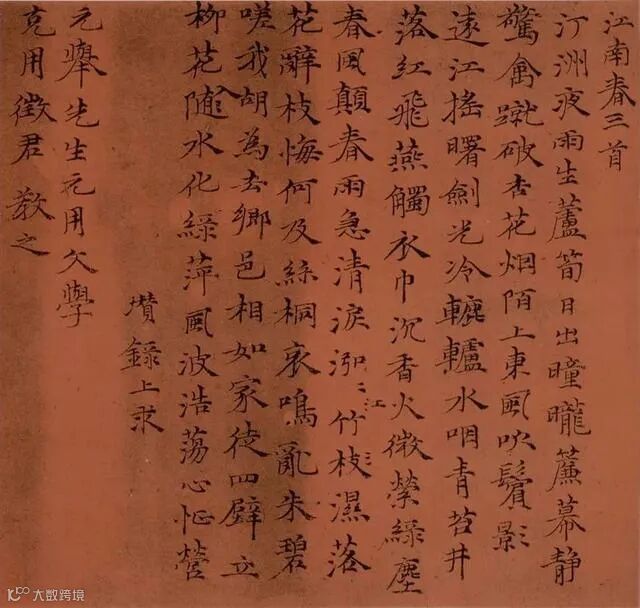 江南春三首
汀洲夜雨生蘆筍日出曈曨簾幕静
驚禽蹴破杏花烟陌上東風吹鬢影
遠江搖曙劍光冷轆轤水咽青苔井
落紅飛燕觸衣巾沉香火微縈緑塵
春風顛春雨急清淚泓〻江竹枝濕落
花辭枝悔何及絲桐哀鳴亂朱碧
嗟我胡為去鄉邑相如家徒四壁立
柳花隨水化緑萍風波浩蕩心怔營
瓚錄上求
元舉先生元用文學
克用徵君教之
大数跨境